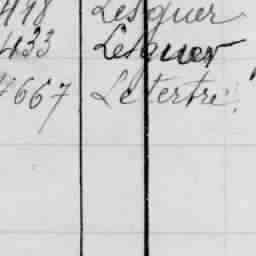 498 Lesquer
433 Lesquer
7667 Letertre